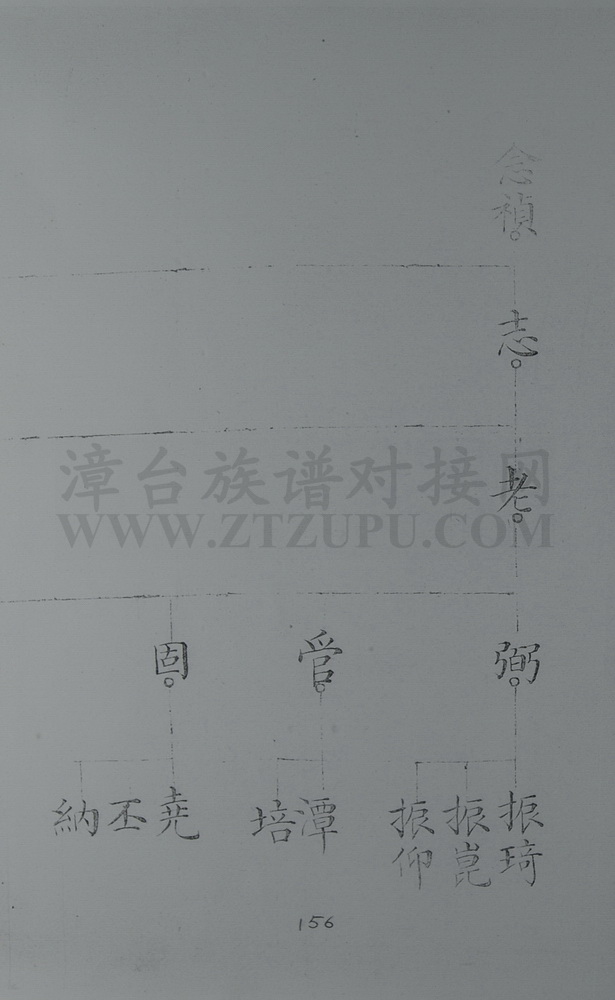 念禎
志
老
弼
管
固
振琦
振崑
振仰
潭
培
尭
丕
納
156
漳台族谱对接网
WWW.ZTZUPU.COM